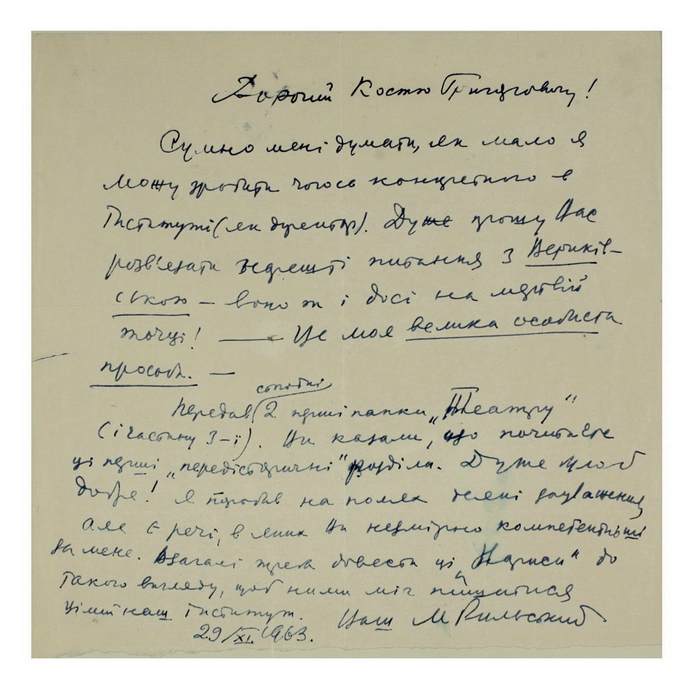 Дорогий Костю Григоровичу!
Сумно мені думати, як мало я
можу зробити чогось конкретного в
Інституті (як директор). Дуже прошу Вас
розв'язати нарешті питання з Вериків-
ською – воно ж і досі на мертвій
точці! — Це моя велика особиста
просьба. —
сьогодні
Передав 2 перші папки „Театру"
(і частину 3-ї). Ви казали, що почитаєте
ці перші „передісторичні" розділи. Дуже
добре! Я поробив на полях деякі зауваження,
але є речі, в яких Ви незмірно компетентніші
за мене. Взагалі треба довести ці „Нариси" до
такого вигляду, щоб ними міг пишатися
цілий наш інститут. Ваш М Рильський
29/XI. 1963.